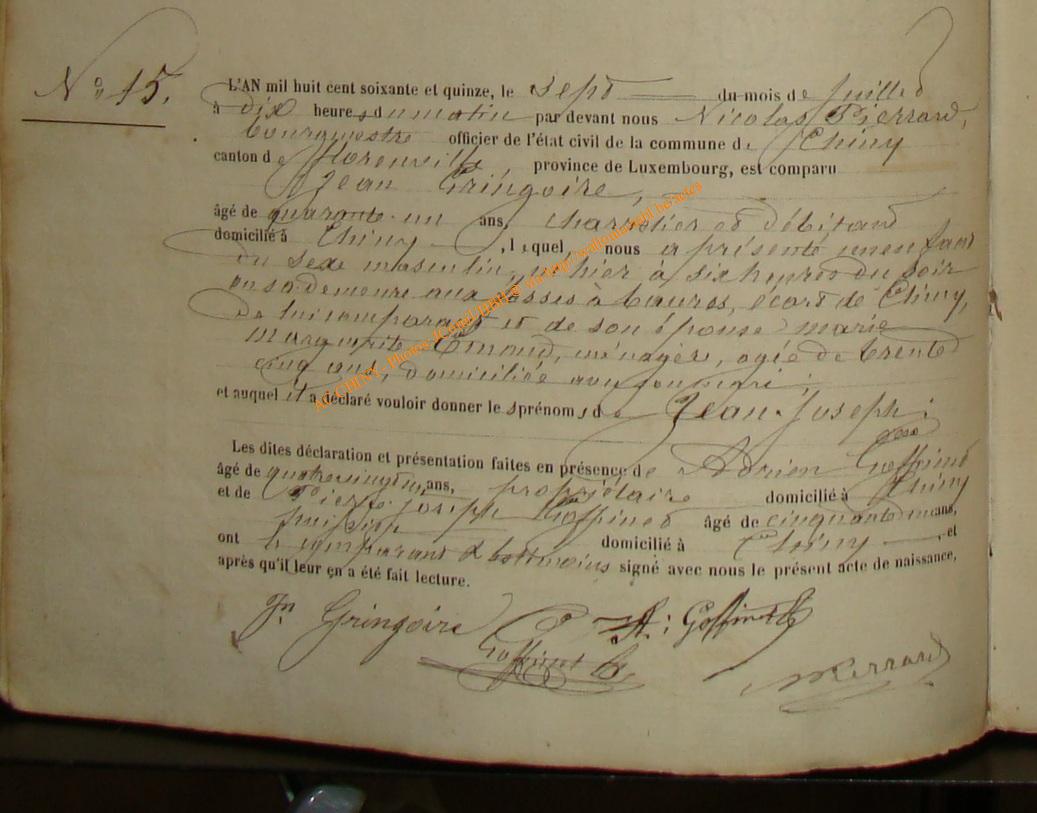 N° 15.
L'AN mil huit cent soixante et quinze, le sept du mois de Juillet
à dix heures du matin par devant nous Nicolas Pierrard,
bourgmestre officier de l'état civil de la commune de Chiny
canton de Florenville province de Luxembourg, est comparu
Jean Gringoire,
âgé de quarante un ans, charretier et débitant
domicilié à Chiny, lequel nous a présenté un enfant
du sexe masculin, né hier à six heures du soir
en sa demeure aux fosses à baures, écart de Chiny,
de lui comparant et de son épouse marie
marguerite Emond, ménagère, agée de trente
cinq ans, domiciliée avec son mari;
et auquel il a déclaré vouloir donner les prénoms de Jean-Joseph;
Les dites déclaration et présentation faites en présence de Adrien Goffinet
âgé de ans, propriétaire domicilié à Chiny
et de Pierre Joseph Goffinet âgé de cinquante ans,
domicilié à Chiny, et
ont le comparant & les témoins signé avec nous le présent acte de naissance,
après qu'il leur en a été fait lecture.
Jn Gringoire A: Goffinet
Goffinet
NPierrard